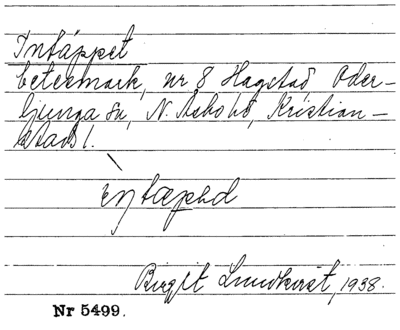 Intäppet
betesmark, nr 8 Hagstad, Oder-
ljunga sn, N. Åsbo hd, Kristian-
stads l.
Birgit Lundkvist, 1938.
Nr 5499.